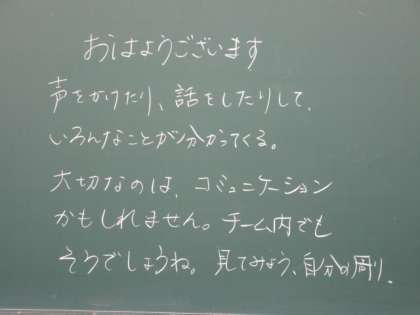 おはようございます
声をかけたり、話をしたりして、
いろんなことが分かってくる。
大切なのは、コミュニケーション
かもしれません。チーム内でも
そうでしょうね。見てみよう、自分の周り。